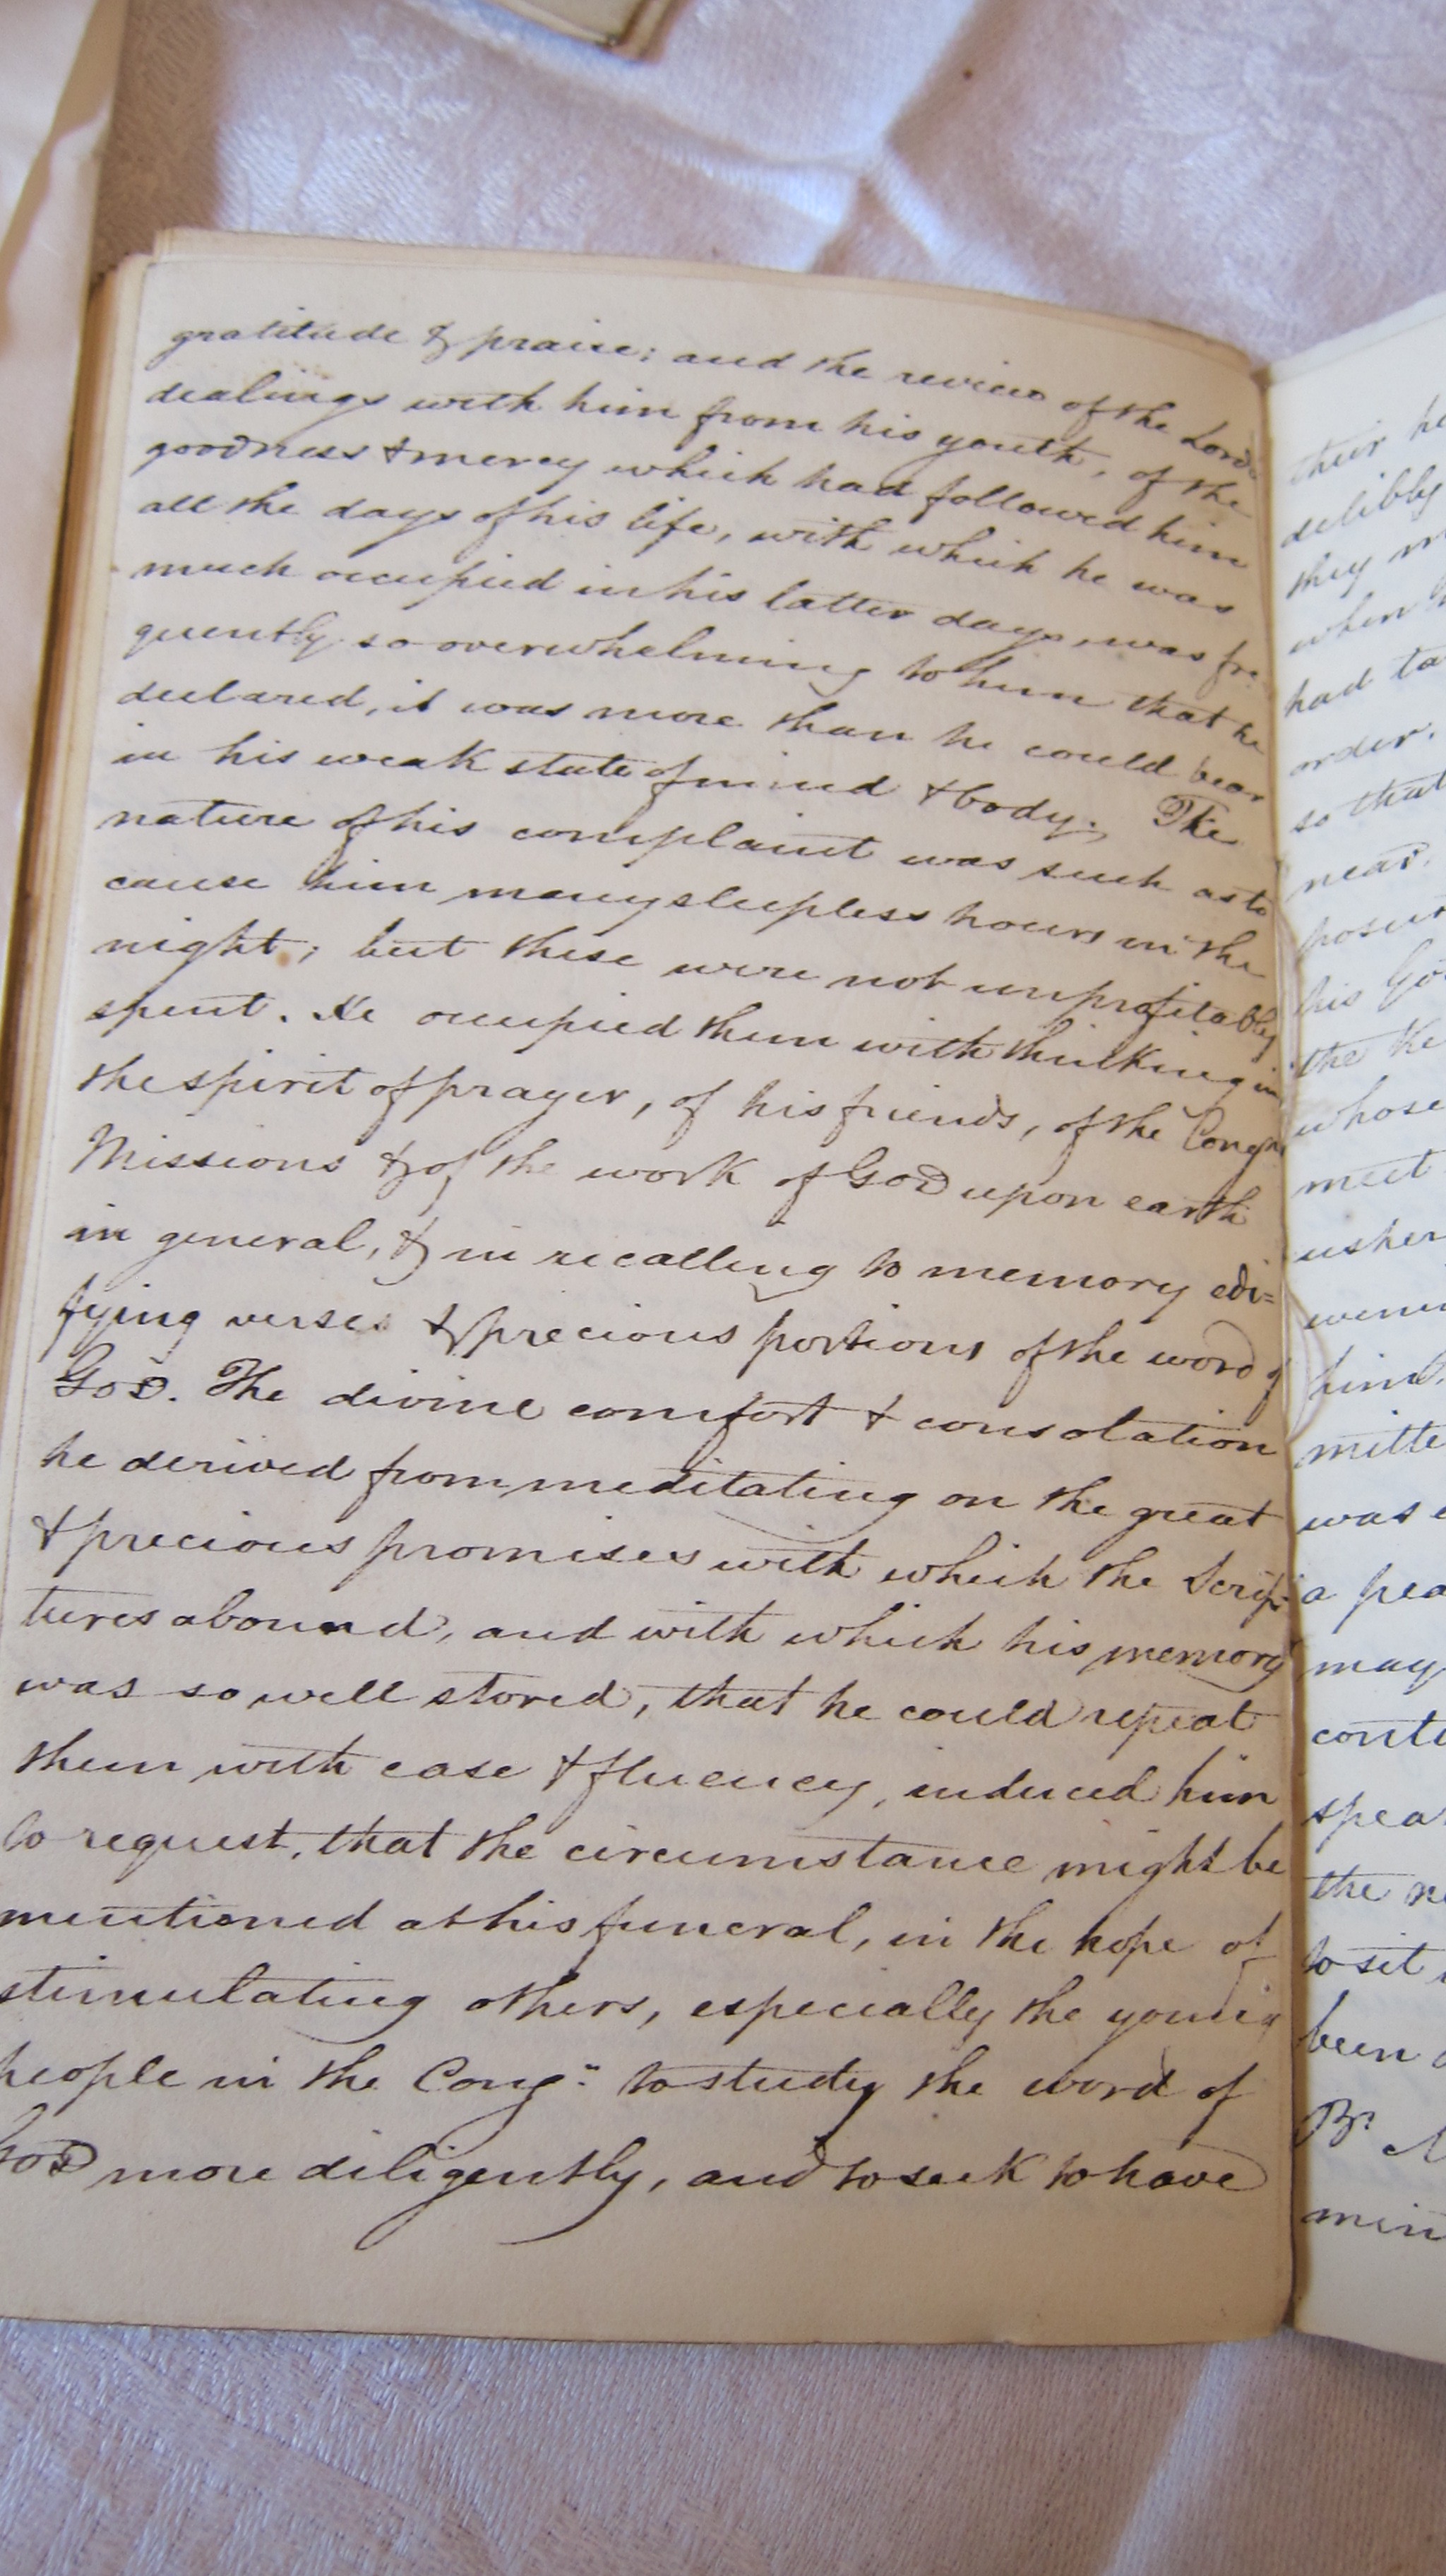 gratitude & praise; and the review of the Lord's
dealings with him from his youth, of the
goodness & mercy which had followed him
all the days of his life, with which he was
much occupied in his latter days, was fre-
quently so overwhelming to him that he
declared, it was more than he could bear
in his weak state of mind & body. The
nature of his complaint was such as to
cause him many sleepless hours in the
night; but these were not unprofitably
spent. He occupied them with thinking in
the spirit of prayer, of his friends, of the Congn
Missions & of the work of GOD upon earth
in general, & in recalling to memory edi=
fying verses & precious portions of the word of
GOD. The divine comfort & consolation
he derived from meditating on the great
& precious promises with which the Scrip-
tures abound, and with which his memory
was so well stored, that he could repeat
them with ease & fluency, induced him
to request, that the circumstance might be
mentioned at his funeral, in the hope of
stimulating others, especially the young
people in the Congn to study the word of
GOD more diligently, and to seek to have
their
delibly
they
when
had
order,
so that
near.
his
the
whose
meet
usher
him.
was
a
may
the
to sit
been
Br